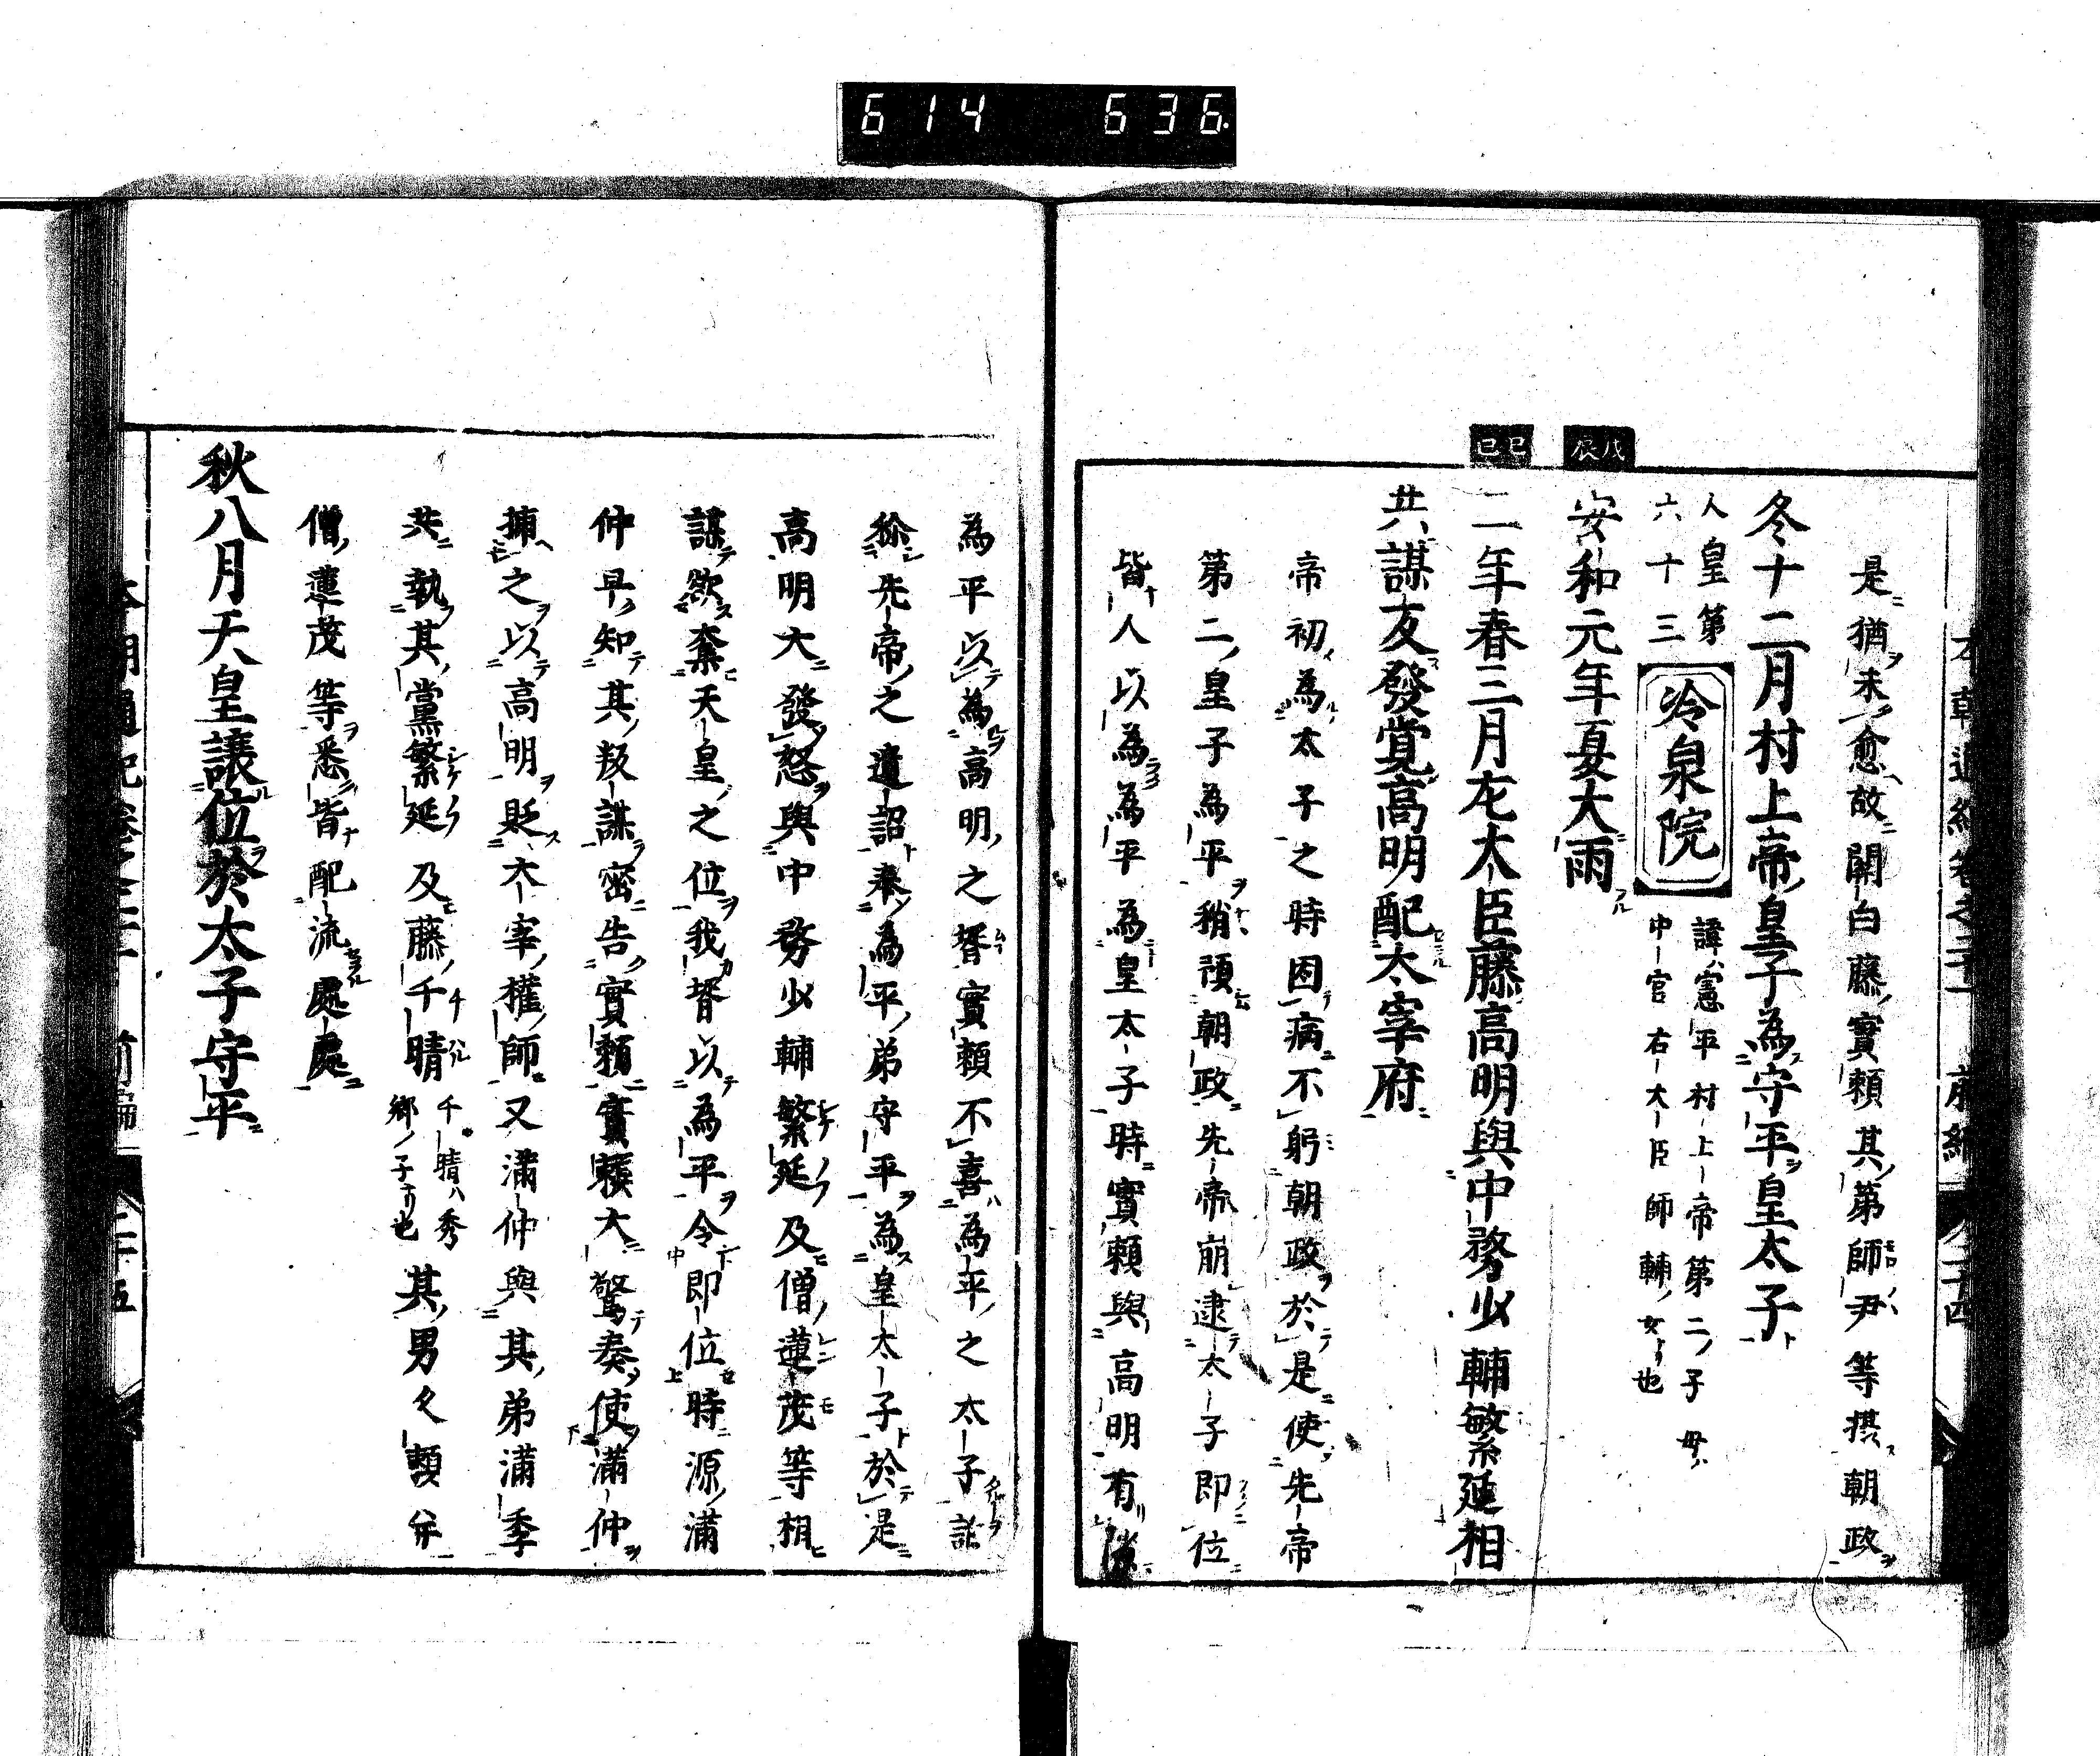 614 636
是猶未愈故關白藤實頼其第師尹等摂朝政
冬十二月村上帝皇子為守平皇太子
人皇第
六十三
冷泉院
諱憲平村上帝第二ノ子母ハ
中宮右大臣師輔ノ女也
戊辰
安和元年夏大雨
己巳
二年春三月左太臣藤高明與中務少輔繁延相
共謀反發覚高明配太宰府
帝初為太子之時因病不躬朝政於是使先帝
第二皇子為平稍預朝政先帝崩逮太子即位
皆人以為為平為皇太子時實頼與高明有隙
為平以為高明之壻實頼不喜為平之太子詐
称先帝之遺詔奉為平弟守平為皇太子於是
高明大發怒與中務少輔繁延及僧蓮茂等相
謀欲奪天皇之位我壻以為平令即位時源滿
仲早知其叛謀密告實頼實頼大驚奏使滿仲
捕之以高明貶太宰權師又滿仲與其弟滿季
共執其黨繁延及藤千晴
千晴ハ秀
郷ノ子也
其男久頼并
僧蓮茂等悉皆配流處處
秋八月天皇讓位於太子守平